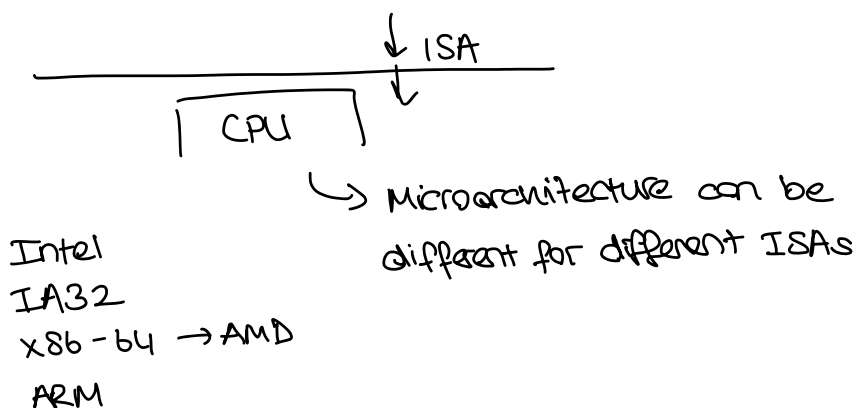 ISA
CPU
Microarchitecture can be
different for different ISAs
Intel
IA32
x86-64 → AMD
ARM